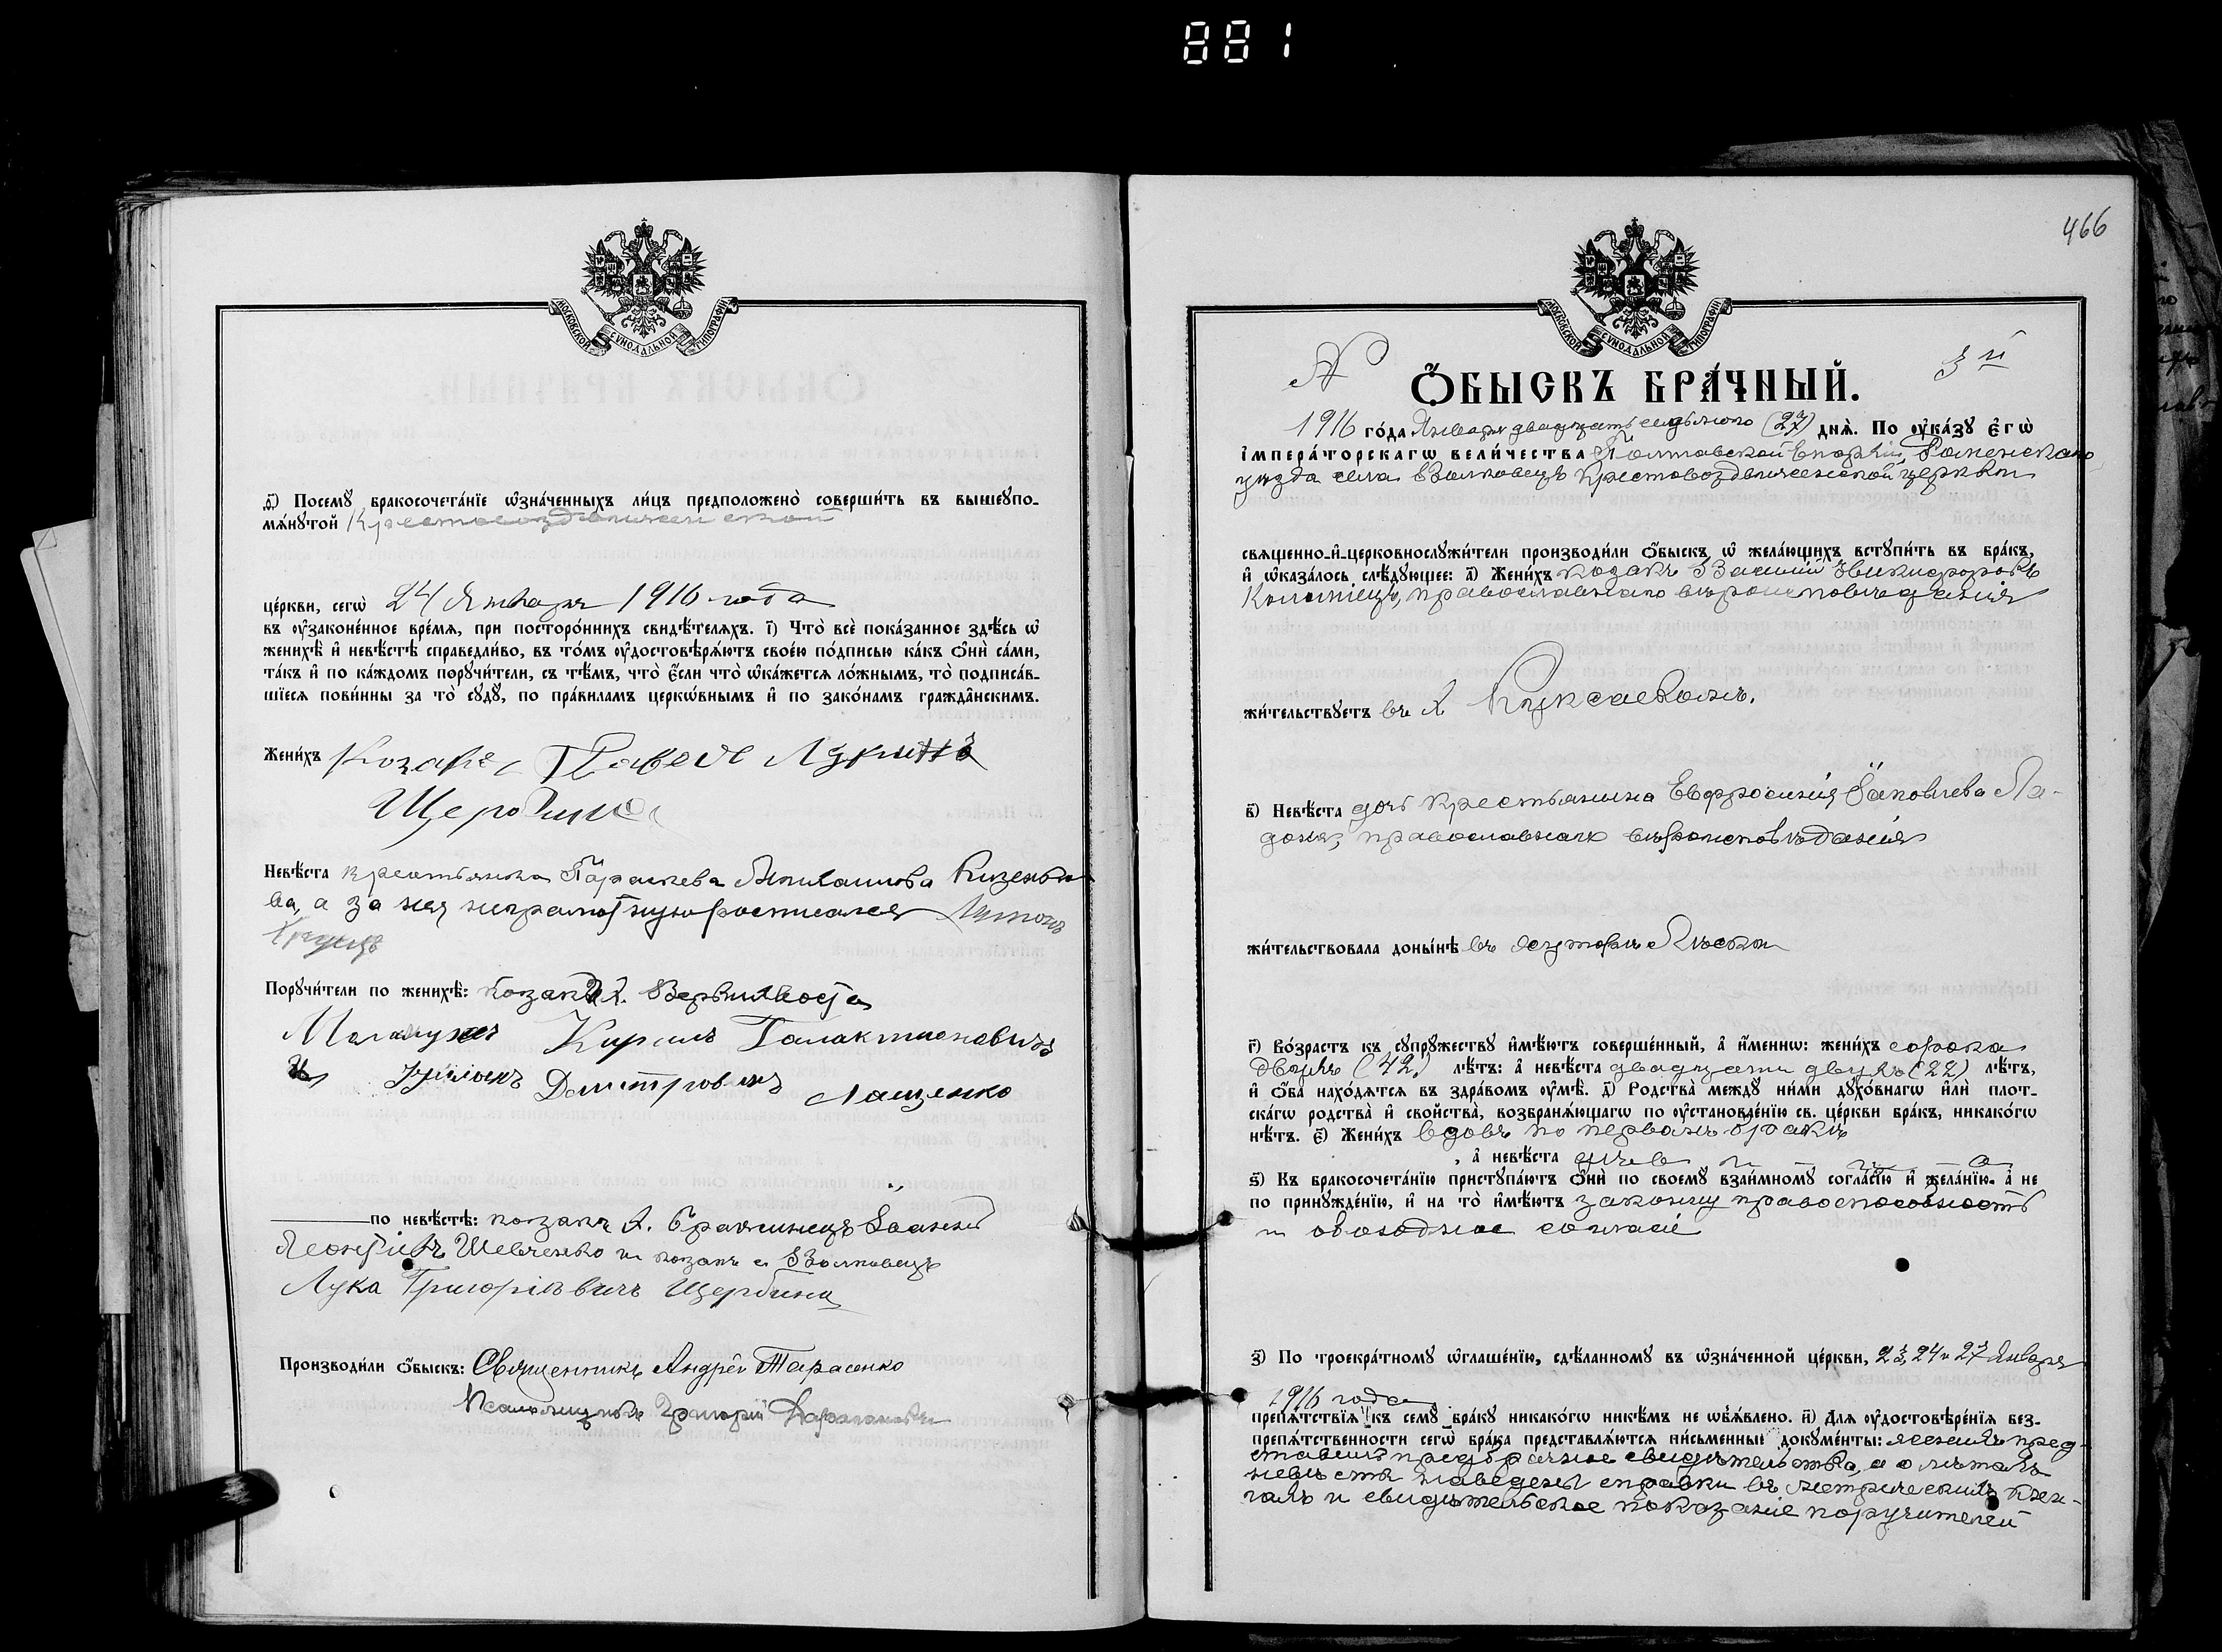 881
МОСКОВСКОЙ СѴНОДАЛЬНОЙ ТИПОГРАФІИ
д҃) Посемꙋ бракосочета́нїе ѡ҆зна́ченныхъ ли́цъ предположено̀ соверши́ть въ вышеупо-
мѧ́нꙋтой Крестовоздвиженской
це́ркви, сегѡ̀ 24 Января 1916 года
въ ᲂу҆законе́нное вре́мѧ, при посторо́ннихъ свидѣ́телѧхъ. і҃) Что̀ всѐ пока́занное здѣ́сь ѡ҆
женихѣ̀ и҆ невѣ́стѣ справедли́во, въ то́мъ ᲂу҆достовѣрѧ́ютъ свое́ю по́дписью ка́къ ѻ҆нѝ са́ми,
та́къ и҆ по ка́ждомъ порꙋчи́тели, съ тѣ́мъ, что̀ є҆́сли что̀ ѡ҆ка́жется ло́жнымъ, то̀ подписа́в-
шїесѧ пови́нны за то̀ сꙋдꙋ̀, по пра́виламъ церкѡ́внымъ и҆ по зако́намъ гражда̂нскимъ.
Жени́хъ Козакъ Павелъ Лукинъ
Щербина
Невѣ́ста крестьянка Параскева
ва, а за нея неграмотную росписался
Порꙋчи́тели по женихѣ̀: козакъ х. Вервихвоста
Кирилъ Галактионовичъ
и Дмитровичъ Лащенко
по невѣ́стѣ: козакъ х. Бражинецъ Іоаннъ
Леонтіевъ Шевченко и козакъ с. Волковецъ
Лука Григоріевичъ Щербина
Производи́ли ѻ҆́быскъ: Священникъ Андрей Тарасенко
Псаломщикъ Григорій
466
МОСКОВСКОЙ СѴНОДАЛЬНОЙ ТИПОГРАФІИ
№ 3й
Ѻ҆́БЫСКЪ БРА́ЧНЫЙ.
1916 го́да Января двадцать седьмого (27) днѧ̀. По ᲂу҆ка́зꙋ є҆гѡ̀
і҆мпера́торскагѡ вели́чества Полтавской Епархіи, Роменскаго
уезда села Волковецъ Крестовоздвиженской церкви
свѧщенно-и҆-церковнослꙋжи́тели производи́ли ѻ҆́быскъ ѡ҆ жела́ющихъ встꙋпи́ть въ бра́къ,
и҆ ѡ҆каза́лось слѣ́дꙋющее: а҃) Жени́хъ козакъ Василій Никифоровъ
Коломіецъ, православнаго вероисповеданія
жи́тельствꙋетъ въ х.
в҃) Невѣ́ста дочь крестьянина Евфросинія Іаковлева Ла-
доня, православнаго вероисповѣданія
жи́тельствовала доны́нѣ въ хуторе Лиски
г҃) Во́зрастъ къ сꙋпрꙋ́жествꙋ и҆мѣ́ютъ соверше́нный, а҆ и҆́меннѡ: жени́хъ сорока
двухъ (42) лѣ́тъ: а҆ невѣ́ста двадцати двухъ (22) лѣ́тъ,
и҆ ѻ҆́ба нахо́дѧтсѧ въ здра́вомъ ᲂу҆мѣ̀. д҃) Родства̀ междꙋ̀ ни́ми дꙋхо́внагѡ и҆лѝ плот-
ска́гѡ родства̀ и҆ сво́йства̀, возбранѧ́ющагѡ по ᲂу҆становле́нїю св. це́ркви бра́къ, никако́гѡ
нѣ́тъ. є҃) Жени́хъ вдовъ по первомъ браке
, а҆ невѣ́ста девица
ѕ҃) Къ бракосочета́нїю пристꙋпа́ютъ ѻ҆нѝ по своемꙋ̀ взаи́мномꙋ согла́сїю и҆ жела́нїю, а҆ не
по принꙋжде́нїю, и҆ на то̀ и҆мѣ́ютъ законну правоспособность
и свободное согласіе
з҃) По троекра́тномꙋ ѡ҆глаше́нїю, сдѣ́ланномꙋ въ ѡ҆зна́ченной це́ркви, 23, 24 и 27 Января
1916 года
препѧ́тствїѧ къ семꙋ̀ бра́кꙋ никако́гѡ никѣ́мъ не ѡ҆б̾ѧ́влено. и҃) Длѧ ᲂу҆достовѣре́нїѧ без-
препѧ́тственности сегѡ̀ бра́ка представлѧ́ютсѧ пи́сьменныѧ докꙋме́нты: женихъ пред-
ставилъ предбрачное свидетельство, а о летахъ
невесты наведены справки въ метрическихъ кни-
гахъ и свидетельское показаніе поручителей